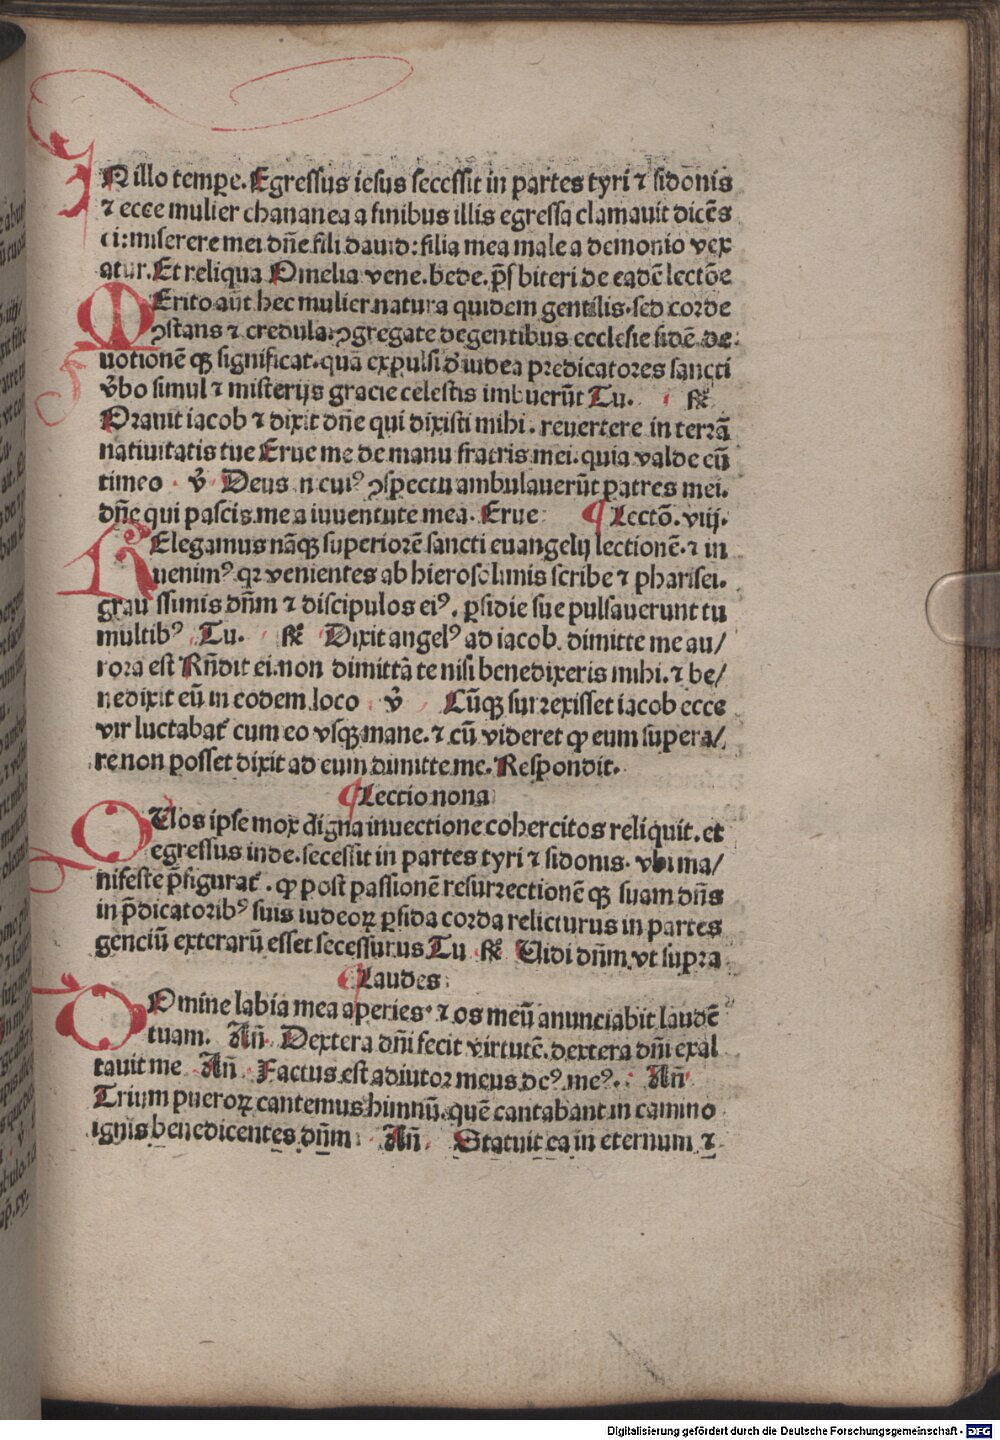 IN illo tempe. Egressus iesus secessit in partes tyri ⁊ sidonis
⁊ ecce mulier chananea a finibus illis egressa clamauit dicēs
ci: miserere mei dn̄e fili dauid: filia mea male a demonio vex
atur. Et reliqua Omelia vene. bede. p̄sbiteri de eadē lectōe
MErito aūt hec mulier natura quidem gentilis. sed corde
ꝯstans ⁊ credula. ꝯgregate de gentibus ecclesie fidē de
uotionē qꝫ significat. quā expulsi d̄ iudea predicatores sancti
v̄bo simul ⁊ misterijs gracie celestis imbuerūt Tu. ℟
Orauit iacob ⁊ dixit dn̄e qui dixisti mihi. reuertere in terrā
natiuitatis tue Erue me de manu fratris mei. quia valde eū
timeo v̄ Deus n cuiꝰ ꝯspectu ambulauerūt patres mei.
dn̄e qui pascis me a iuuentute mea. Erue ¶ Lectō. viij.
RElegamus nāqꝫ superiorē sancti euangelij lectionē. ⁊ in
uenimꝰ qꝛ venientes ab hierosolimis scribe ⁊ pharisei.
grau ssimis dn̄m ⁊ discipulos eiꝰ. ꝑsidie sue pulsauerunt tu
multibꝰ Tu. ℟ Dixit angelꝰ ad iacob. dimitte me au/
rora est Rn̄dit ei. non dimittā te nisi benedixeris mihi. ⁊ be/
nedixit eū in eodem loco v̄ Cūqꝫ surrexisset iacob ecce
vir luctabat᷑ cum eo vsqꝫ mane. ⁊ cū videret ꝙ eum supera/
re non posset dixit ad eum dimitte me. Respondit.
¶ Lectio nona
QUos ipse mox digna inuectione cohercitos reliquit. et
egressus inde. secessit in partes tyri ⁊ sidonis. vbi ma/
nifeste p̄figurat᷑. ꝙ post passionē resurrectionē qꝫ suam dn̄s
in p̄dicatoribꝰ suis iudeoꝝ ꝑfida corda relicturus in partes
genciū exterarū esset secessurus Tu ℟ Uidi dn̄m. vt supra
¶ Laudes
DOmine labia mea aperies. ⁊ os meū anunciabit laudē
tuam. An̄ Dextera dn̄i fecit virtutē. dextera dn̄i exal
tauit me An̄ Factus est adiutor meus deꝰ meꝰ. An̄
Trium pueroꝝ cantemus himnū. quē cantabant in camino
ignis benedicentes dn̄m An̄ Statuit ea in eternum ⁊
Digitalisierung gefördert durch die Deutsche Forschungsgemeinschaft - DFG